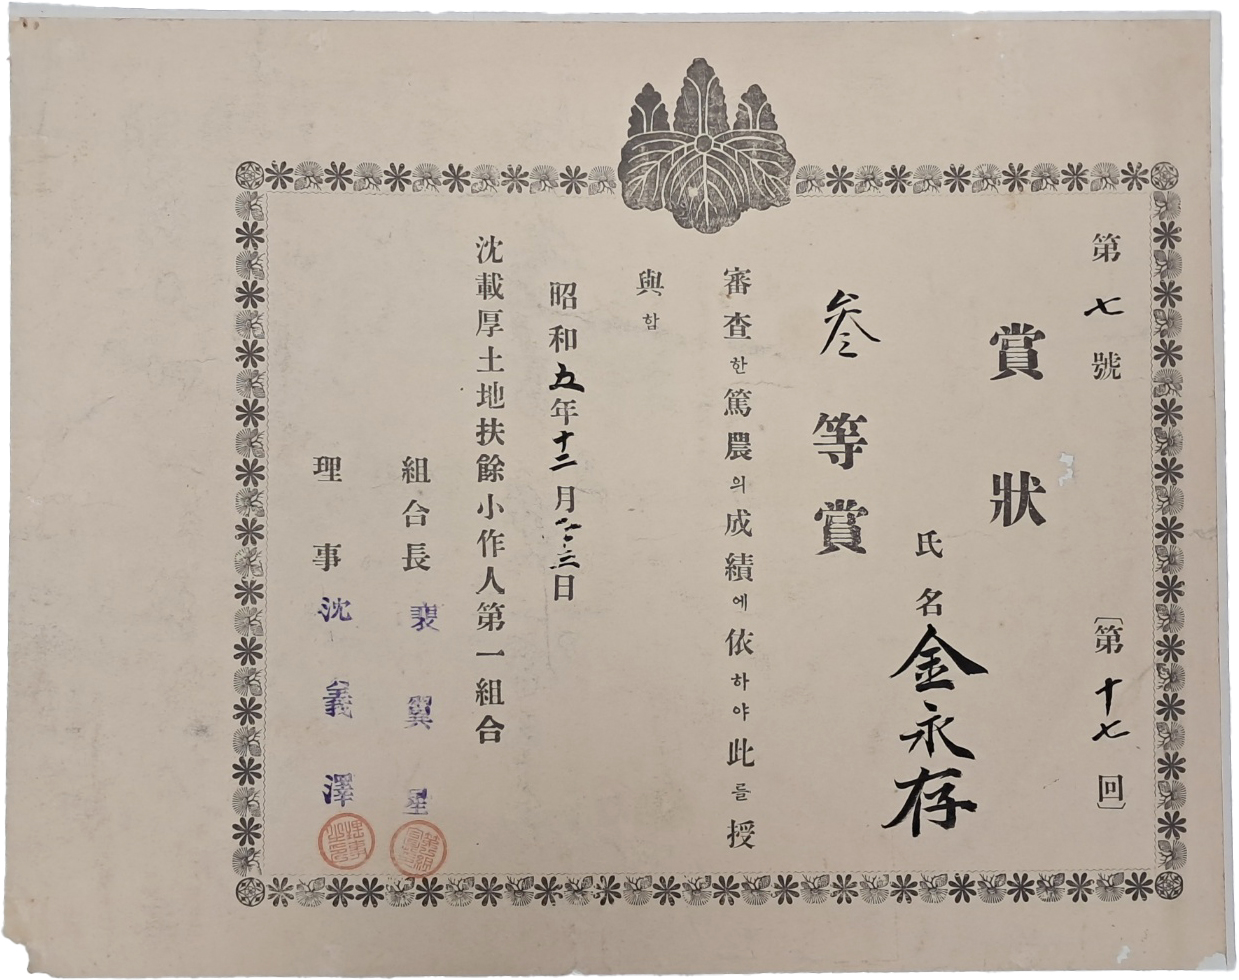 第七號 〔第十七回〕
賞狀
氏名 金永存
叁等賞
審査한篤農의成績에依하야此를授
與함
昭和五年十二月 日
沈載厚土地扶餘小作人第一組合
組合長 裵翼星
理事 沈義澤